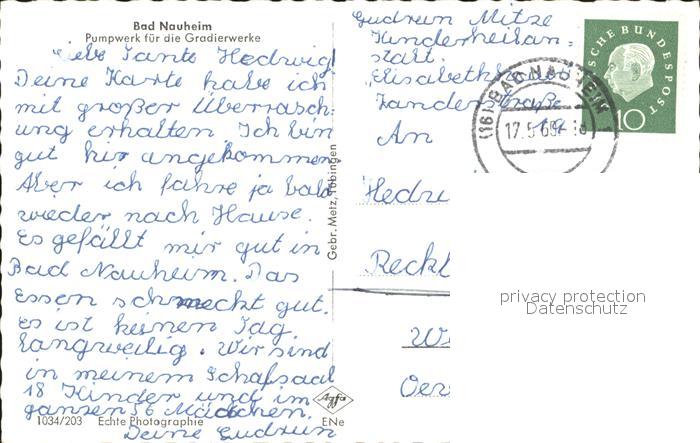 Bad Nauheim
Pumpwerk für die Gradierwerke
Liebe Tante Hedwig!
Deine Karte habe ich
mit großer Überrasch-
ung erhalten. Ich bin
gut hir angekommen
Aber ich fahre ja bald
wieder nach Hause.
Es gefällt mir gut in
Bad Nauheim. Das
Essen schmeckt gut.
es ist keinen Tag
langweilig. Wir sind
in meinem Schafsaal
18 Kinder und im
ganzen 56 Mädchen.
Deine Gudrun
1034/203 Echte Photographie
ENe
Agfa
Gebr. Metz, Tübingen
Gudrun Mitze
Kinderheilan-
stalt.
Zanderstraße
An
Hedw
Reckl
Oer
DEUTSCHE BUNDESPOST
10
(16) BAD NAUHEIM
17.5.
privacy protection
Datenschutz